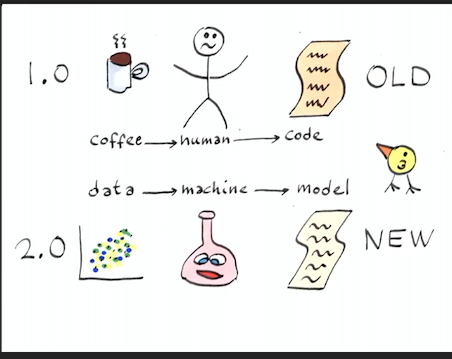 1.0 OLD
coffee → human → code
data → machine → model
2.0 NEW